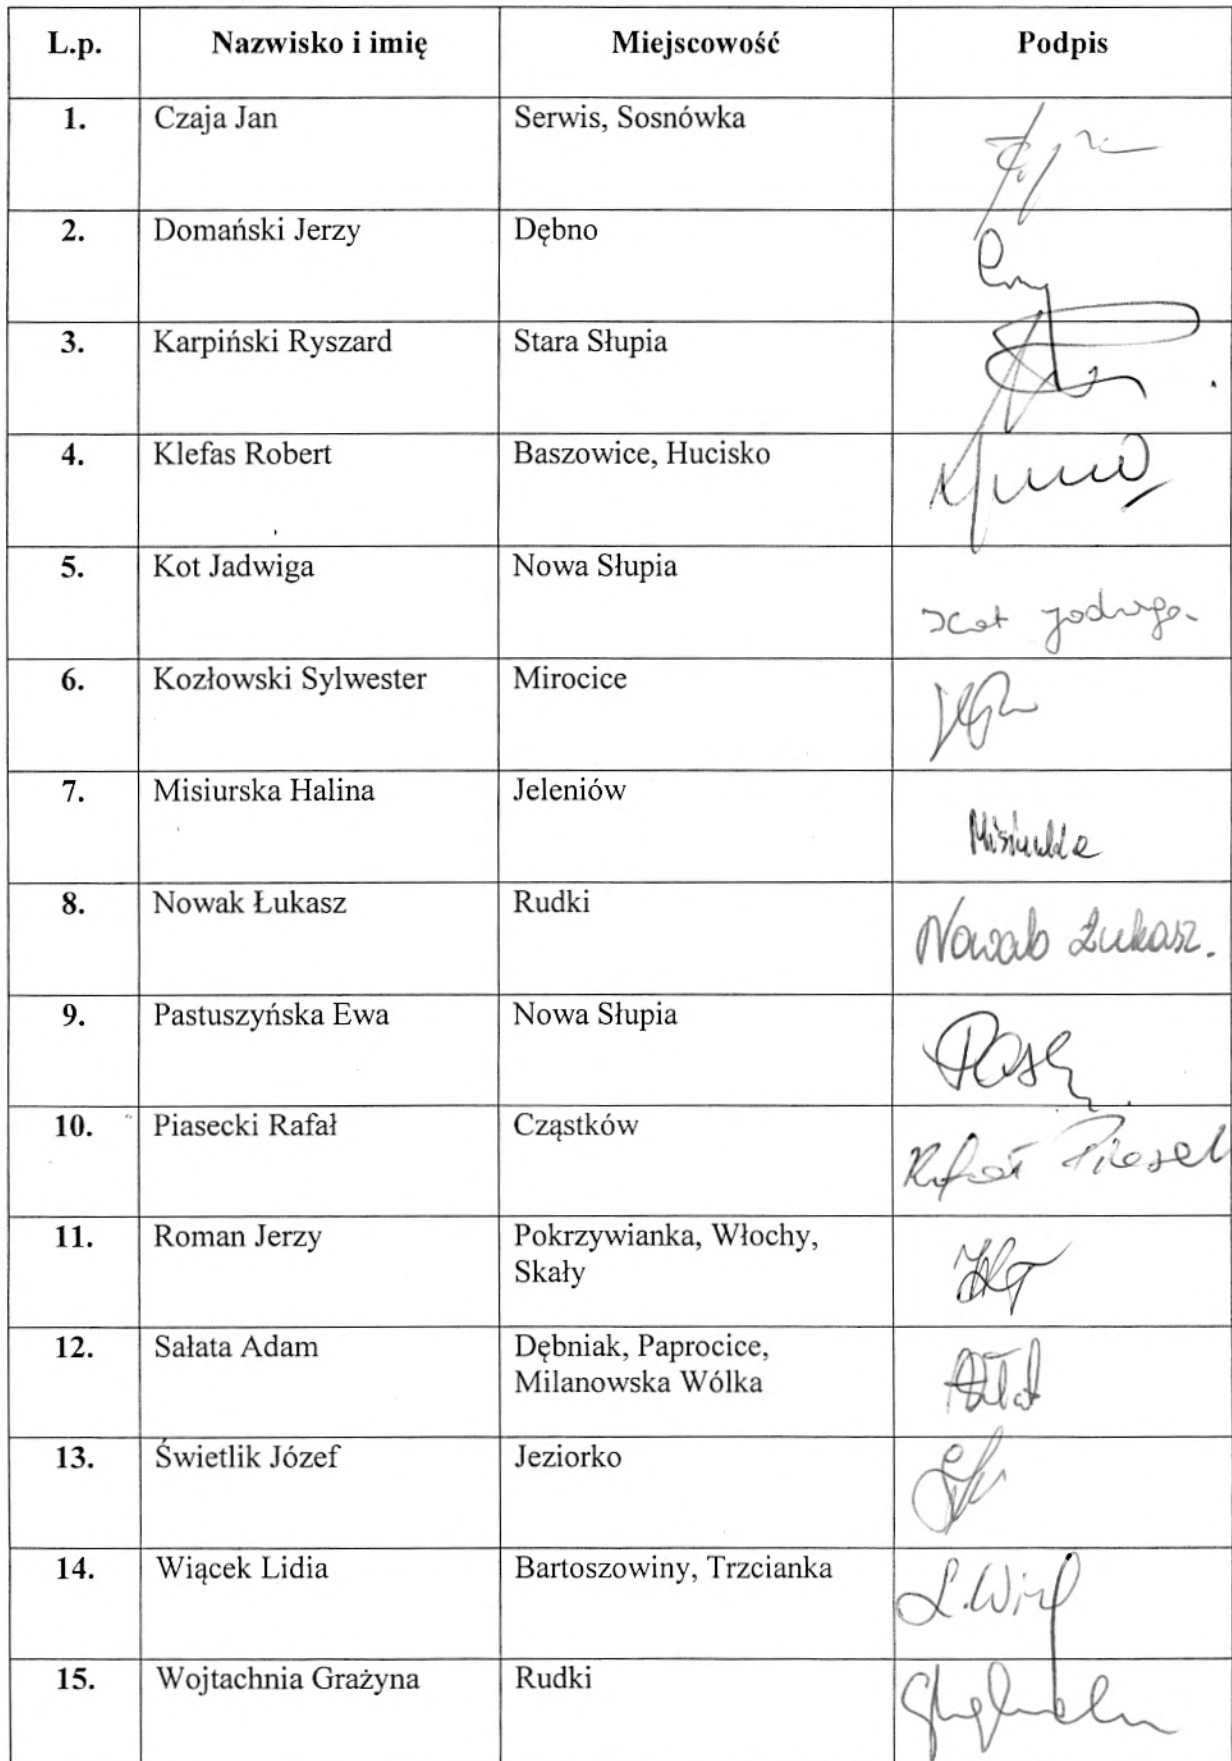 L.p. Nazwisko i imię Miejscowość Podpis
1. Czaja Jan Serwis, Sosnówka
2. Domański Jerzy Dębno
3. Karpiński Ryszard Stara Słupia
4. Klefas Robert Baszowice, Hucisko
5. Kot Jadwiga Nowa Słupia Kot Jadwiga
6. Kozłowski Sylwester Mirocice
7. Misiurska Halina Jeleniów
8. Nowak Łukasz Rudki Nowak Łukasz.
9. Pastuszyńska Ewa Nowa Słupia
10. Piasecki Rafał Cząstków Rafał
11. Roman Jerzy Pokrzywianka, Włochy,
Skały
12. Sałata Adam Dębniak, Paprocice,
Milanowska Wólka
13. Świetlik Józef Jeziorko
14. Wiącek Lidia Bartoszowiny, Trzcianka
15. Wojtachnia Grażyna Rudki